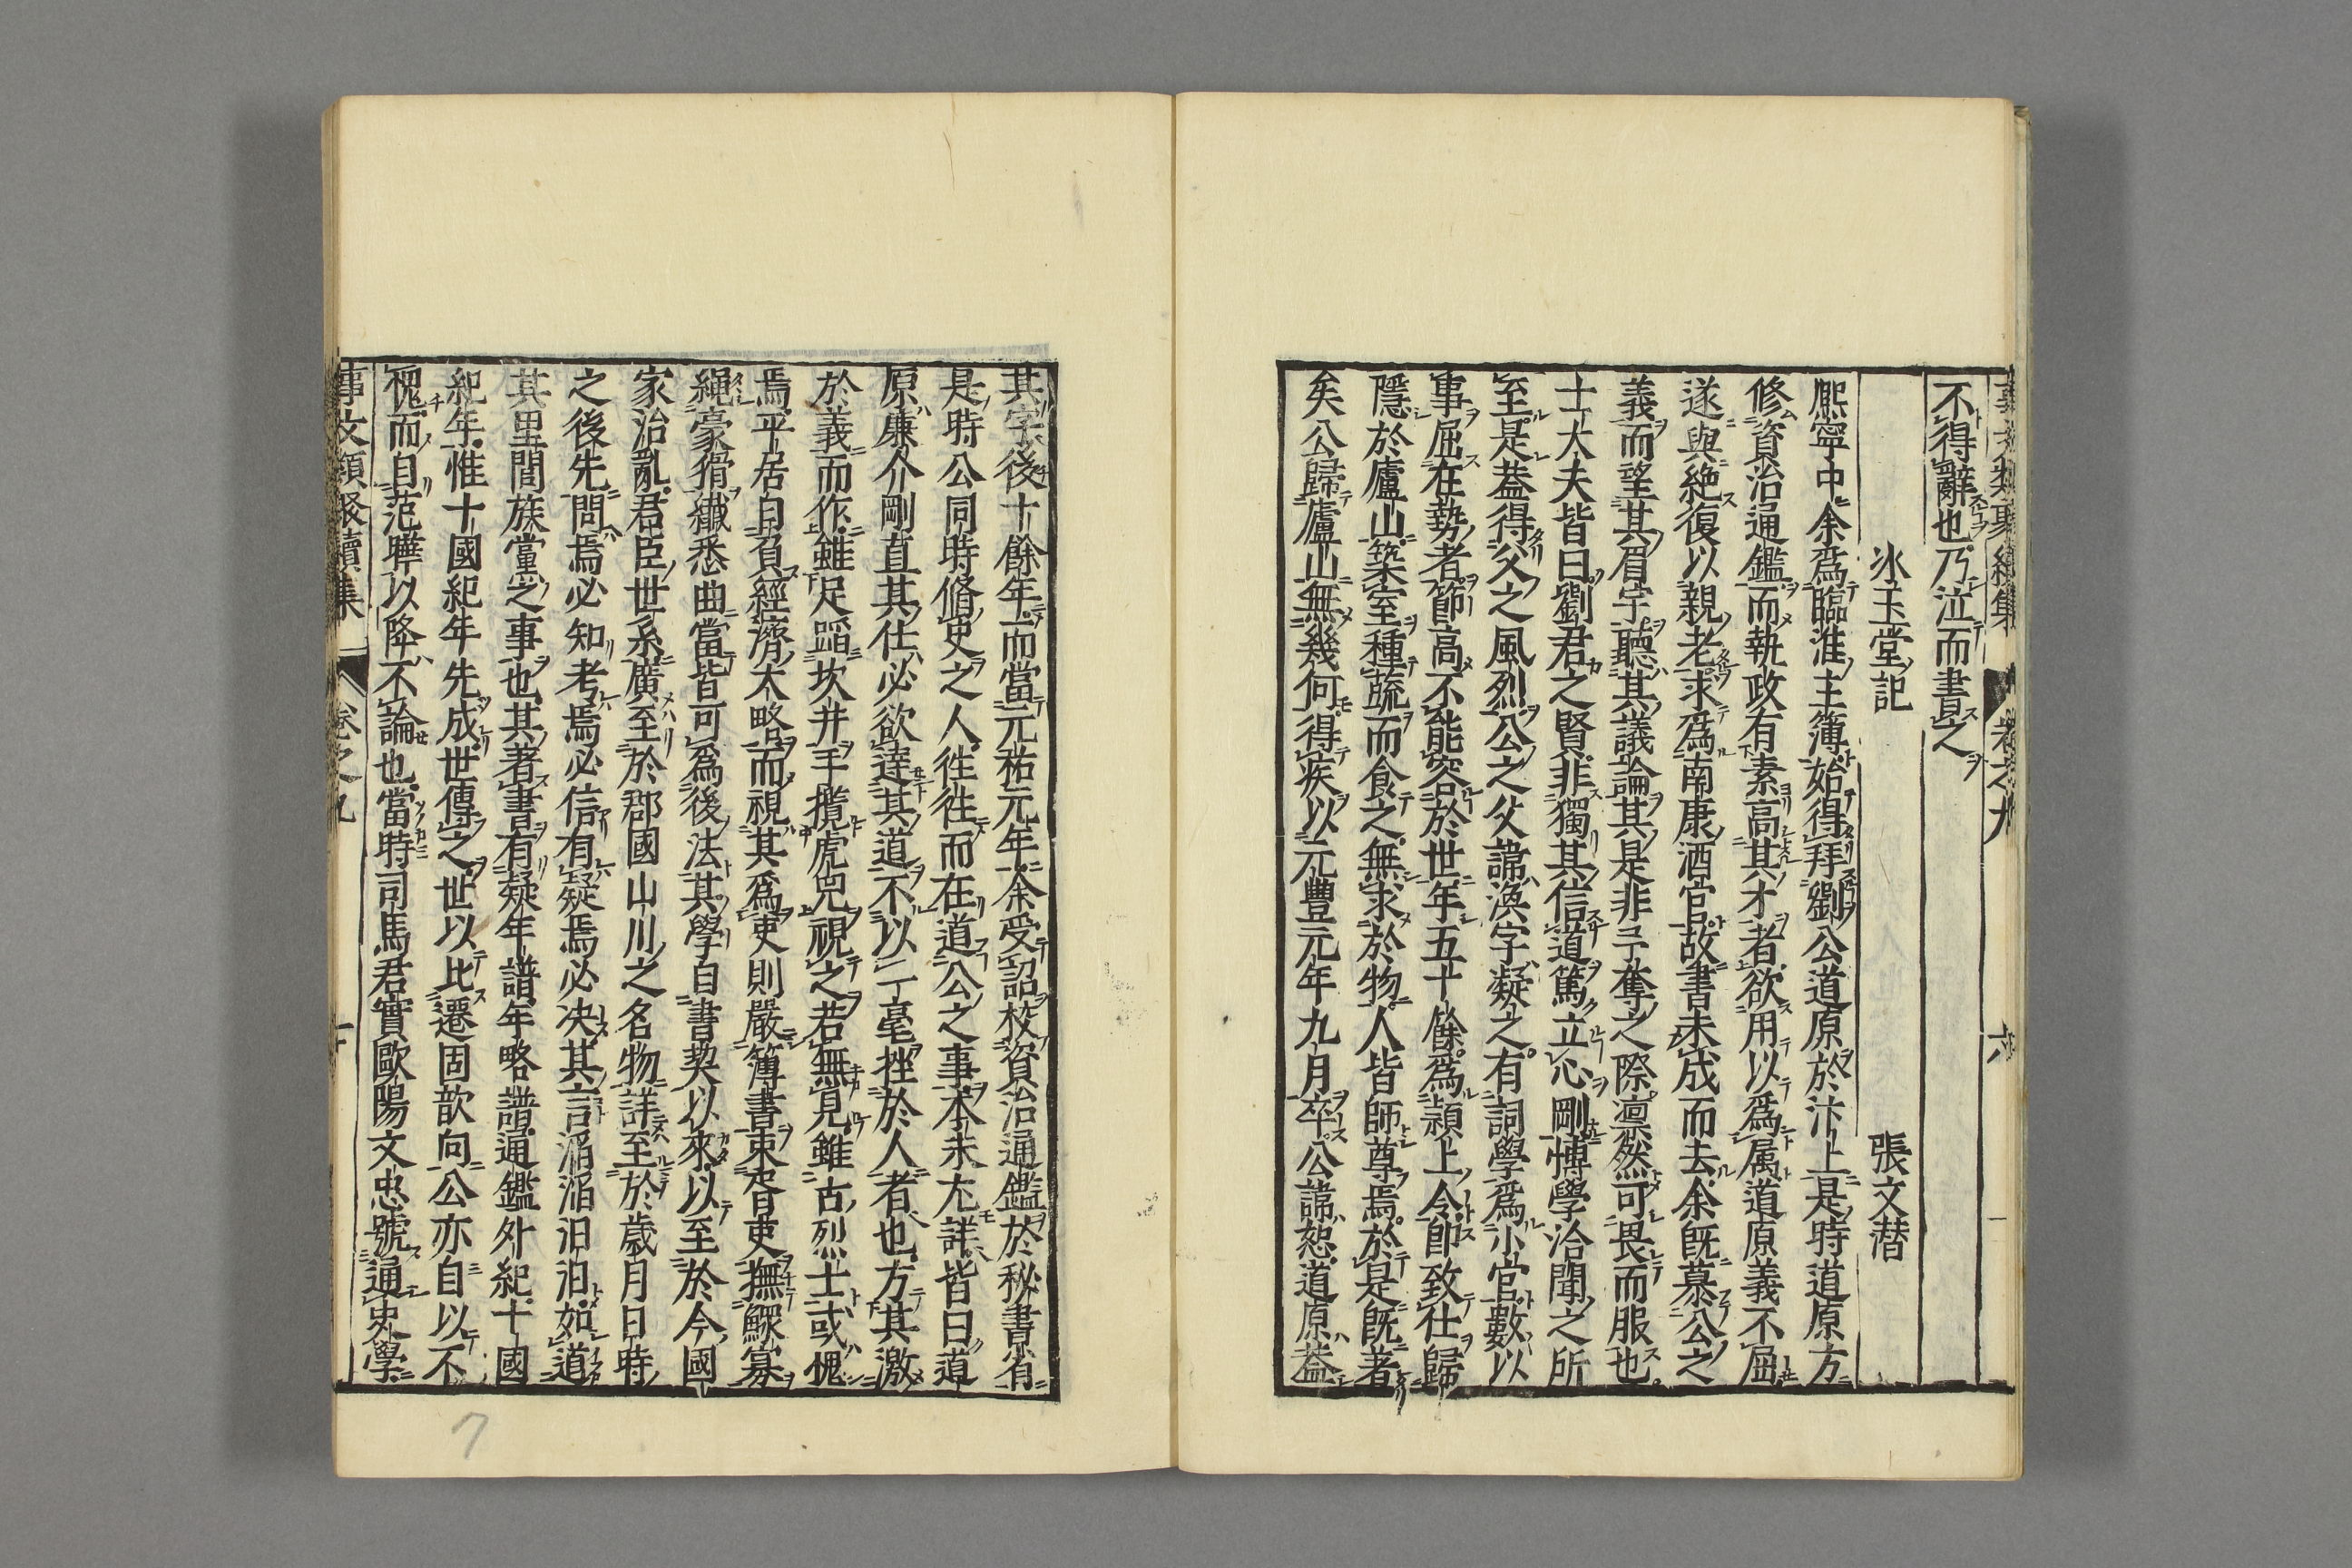 事文類聚續集 卷之九 六
不得辭也乃泣而書之
冰玉堂記 張文潜
熈寧中余爲臨淮主簿始得拜劉公道原於汴上是時道原方
修資治通鑑而執政有素高其才者欲用以爲属道原義不屈
遂與絶復以親老求爲南康酒官故書未成而去余旣慕公之
義而望其眉宇聽其議論其是非予奪之際凛然可畏而服也
士大夫皆曰劉君之賢非獨其信道篤立心剛博學洽聞之所
至是葢得父之風烈公之父諱渙字凝之有詞學爲小官數以
事屈在勢者節高不能容於世年五十餘爲潁上令卽致仕歸
隱於廬山築室種蔬而食之無求於物人皆師尊焉於是旣著
矣公歸廬山無幾何得疾以元豐元年九月卒公諱恕道原葢
其字後十餘年而當元祐元年余受詔校資治通鑑於秘書省
是時公同時脩史之人徃徃而在道公之事本末尤詳皆曰道
原廉介剛直其仕必欲達其道不以一毫挫於人者也方其激
於義而作雖足蹈坎井手攬虎兕視之若無見雖古烈士或愧
焉平居自負經濟大略而視其爲吏則嚴簿書束胥吏撫鰥寡
繩豪猾纎悉曲當皆可爲後法其學自書契以來以至於今國
家治亂君臣世系廣至於郡國山川之名物詳至於歳月日時
之後先問焉必知考焉必信有疑焉必决其言滔滔汨汨如道
其里閭族黨之事也其著書有疑年譜年略譜通鑑外紀十國
紀年惟十國紀年先成世傳之世以比遷固歆向公亦自以不
愧而自范曄以降不論也當時司馬君實歐陽文忠號通史學
事文類聚續集 卷之九